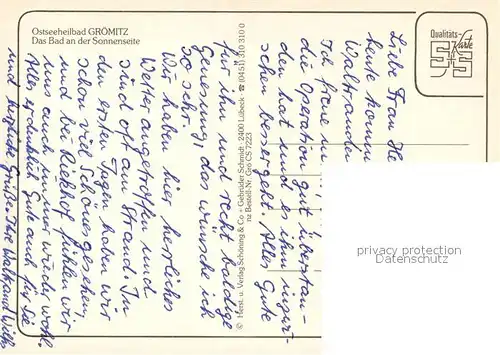 Ostseeheilbad GRÖMITZ
Das Bad an der Sonnenseite
Qualitäts-
Karte
Liebe Frau He
heute komm
Waltraudl
Ich freue
die Operation gut überstan-
den hat und es ihm inzwi-
schen besser geht. Alles Gute
für ihn und recht baldige
Genesung, das wünsche ich
so sehr.
Wir haben hier herrliches
Wetter angetroffen und
sind oft am Strand. In
den ersten Tagen haben wir
schon viel Schönes gesehen,
und bei Rickhof fühlen wir
uns auch immer wieder wohl.
Alles erdenklich Gute auch für Sie
und herzliche Grüße. Ihre Waltraud
© Herst. u. Verlag Schöning & Co + Gebrüder Schmidt · 2400 Lübeck · ☎ (0451) 310 310 0
nz Bestell-Nr. Grö CS 7223
privacy protection
Datenschutz